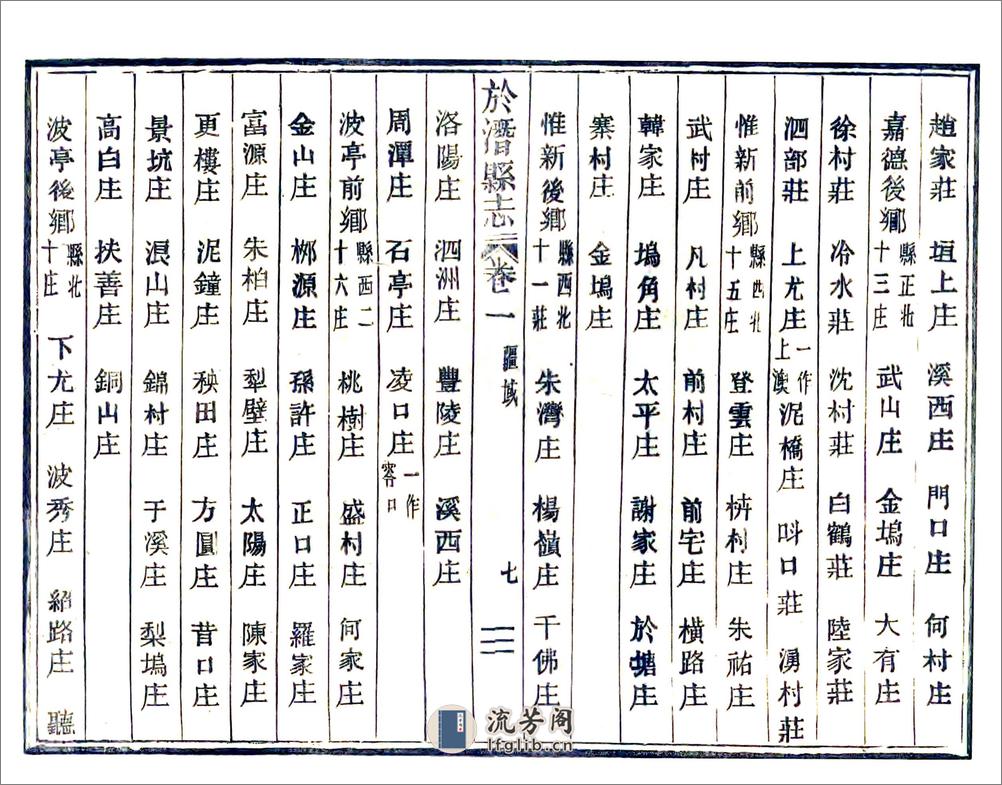 趙家莊 垣上庄 溪西庄 門口庄 何村庄
嘉德後鄉 縣正北十三庄 武山庄 金塢庄 大有庄
徐村莊 冷水莊 沈村莊 白鶴莊 陸家莊
泗部莊 上尤庄 一作上澳 泥橋庄 呌口莊 湧村莊
惟新前鄉 縣西北十五庄 登雲庄 枿村庄 朱祐庄
武村庄 凡村庄 前村庄 前宅庄 橫路庄
韓家庄 塢角庄 太平庄 謝家庄 於塘庄
寨村庄 金塢庄
惟新後鄉 縣西北十一莊 朱灣庄 楊嶺庄 千佛庄
於潛縣志 卷一 疆域 七
洛陽庄 泗洲庄 豐陵庄 溪西庄
周潭庄 石亭庄 凌口庄 一作 口
波亭前鄉 縣西二十六庄 桃樹庄 盛村庄 何家庄
金山庄 榔源庄 孫許庄 正口庄 羅家庄
富源庄 朱柏庄 犁壁庄 太陽庄 陳家庄
更樓庄 泥鐘庄 秧田庄 方圓庄 昔口庄
景坑庄 浪山庄 錦村庄 于溪庄 梨塢庄
高白庄 扶善庄 銅山庄
波亭後鄉 縣北十庄 下尤庄 波秀庄 紹路庄 聽
流芳阁
lfglib.cn